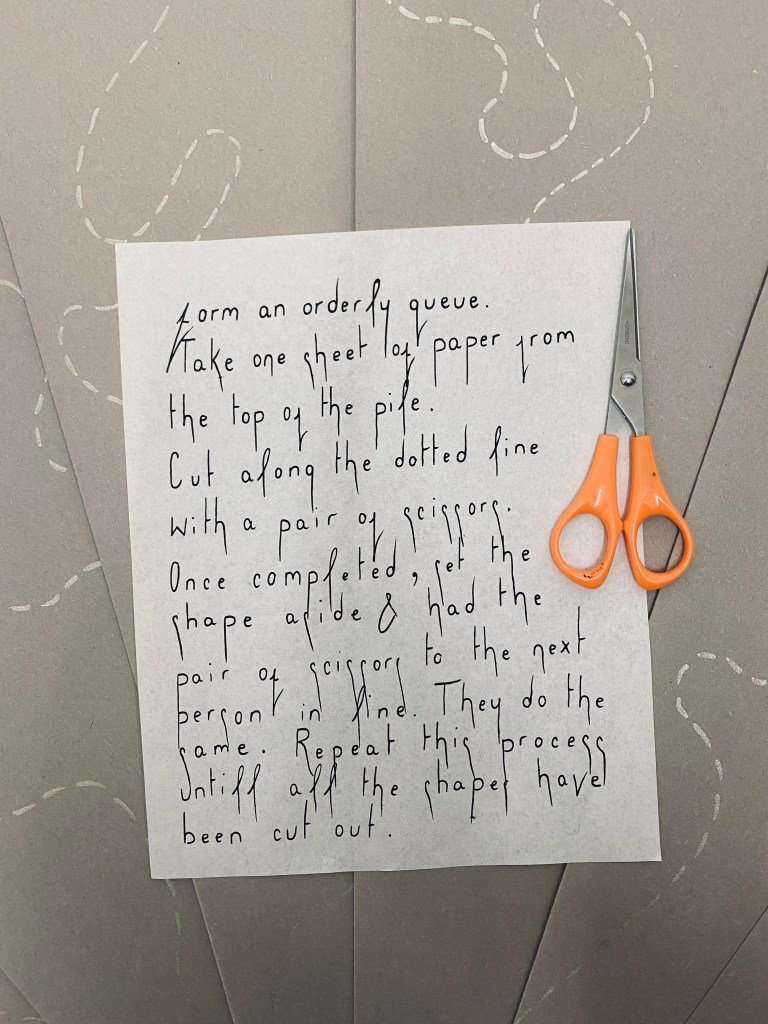 form an orderly queue.
Take one sheet of paper from
the top of the pile.
Cut along the dotted line
with a pair of scissors.
Once completed, set the
shape aside & had the
pair of scissors to the next
person in line. They do the
same. Repeat this process
untill all the shapes have
been cut out.